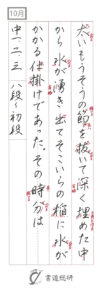 10月
太いもうそうの節を抜いて深く埋めた中
から水が湧き出てそこいらの稲に水が
かかる仕掛であった。その時分は
中一二三 八段〜初段
書道総研